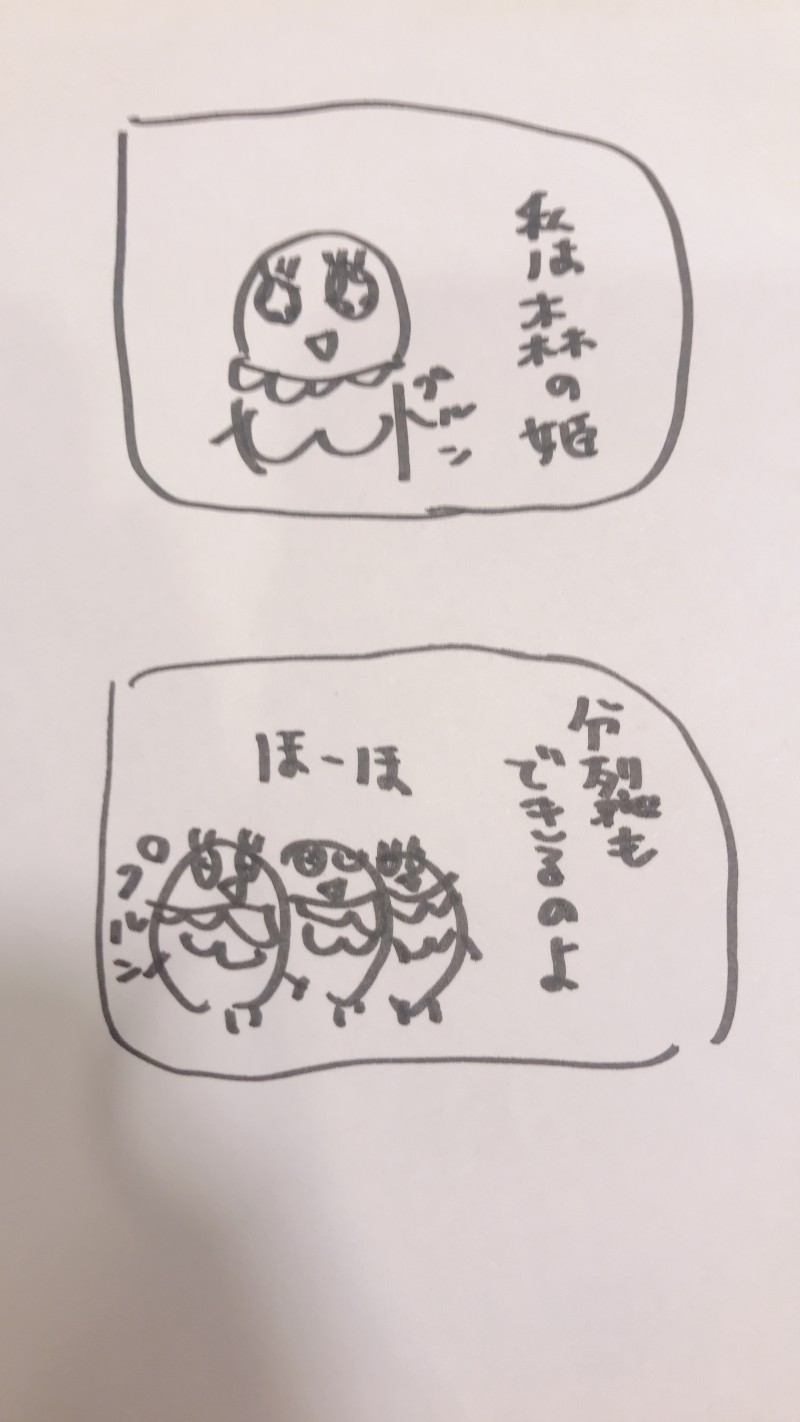 私は森の姫
プルン
分裂も
できるのよ
ほーほ
プルン